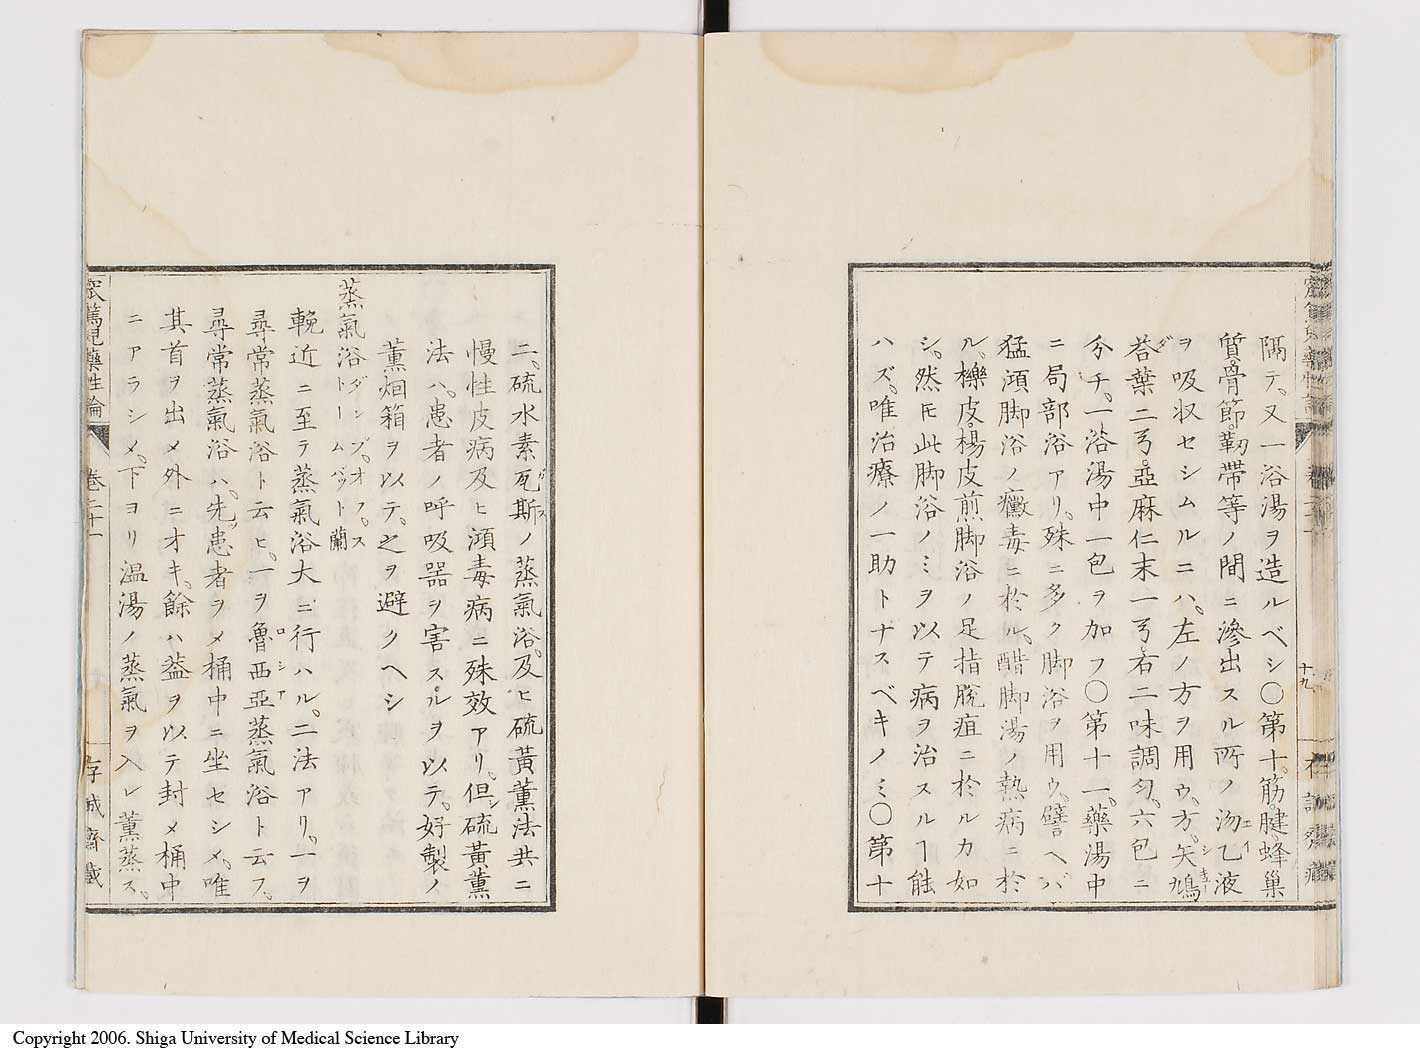 隔テ、又一浴湯ヲ造ルベシ〇第十、筋、腱、蜂巢
質、骨節、靭帶等ノ間ニ滲出スル所ノ沕乙液
ヲ吸収セシムルニハ、左ノ方ヲ用ウ、方、矢鳩
荅葉二弓、亞麻仁末一弓、右二味調匀、六包ニ
分チ、一浴湯中一包ヲ加フ〇第十一、藥湯中
ニ局部浴アリ、殊ニ多ク脚浴ヲ用ウ、譬ヘバ
猛澒脚浴ノ黴毒ニ於ル、醋脚湯ノ熱病ニ於
ル、櫟皮、楊皮煎脚浴ノ足指脫疽ニ於ルカ如
シ、然𪜈此脚浴ノミヲ以テ病ヲ治スルヿ能
ハズ、唯治療ノ一助トナスベキノミ〇第十
十九
二、硫水素瓦斯ノ蒸氣浴、及ヒ硫黃薰法共ニ
慢性皮病及ヒ澒毒病ニ殊效アリ、但シ硫黃薰
法ハ、患者ノ呼吸器ヲ害スルヲ以テ、好製ノ
薰烟箱ヲ以テ、之ヲ避クヘシ
蒸氣浴ダンプ、オフ、ス
トームバット蘭
輓近ニ至テ蒸氣浴大ニ行ハル、二法アリ、一ヲ
尋常蒸氣浴ト云ヒ、一ヲ魯西亞蒸氣浴ト云フ、
尋常蒸氣浴ハ、先ツ患者ヲメ桶中ニ坐セシメ、唯
其首ヲ出メ外ニオキ、餘ハ葢ヲ以テ封メ桶中
ニアラシメ、下ヨリ温湯ノ蒸氣ヲ入レ薰蒸ス、
窊篤兒藥性論
卷二十一
存誠齋藏
Copyright 2006. Shiga University of Medical Science Library